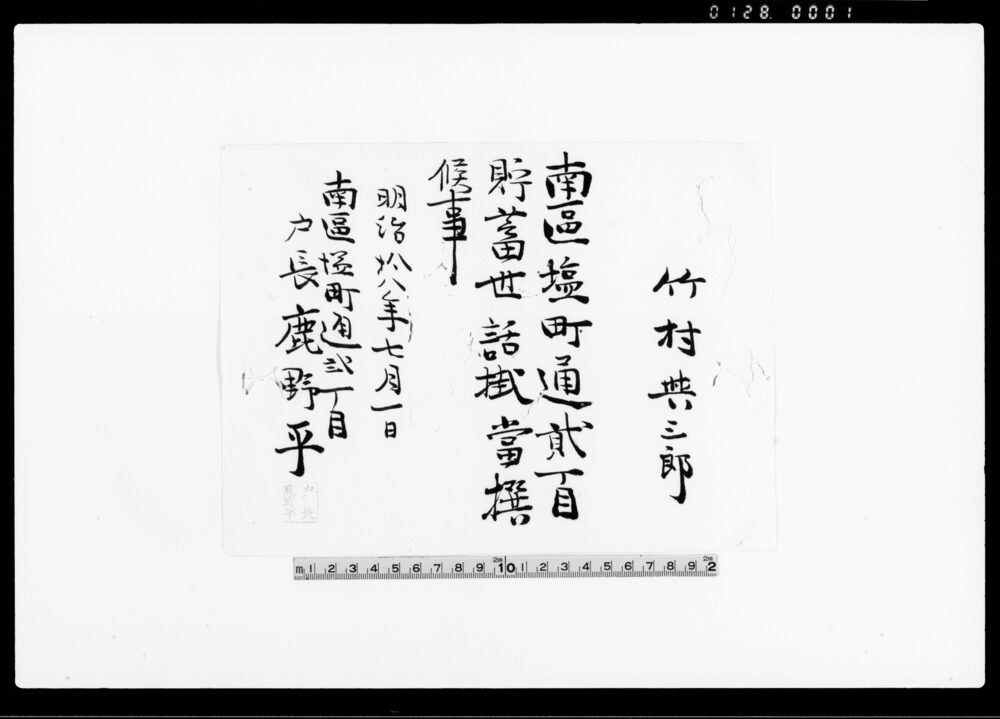 0128. 0001
竹村共三郎
南區塩町通貮丁目
貯蓄世話掛當撰
候事
明治拾八年七月一日
南區塩町通弐丁目
戸長鹿野平
戸長
鹿野平
m 1 2 3 4 5 6 7 8 9 10 1 2 3 4 5 6 7 8 9 2